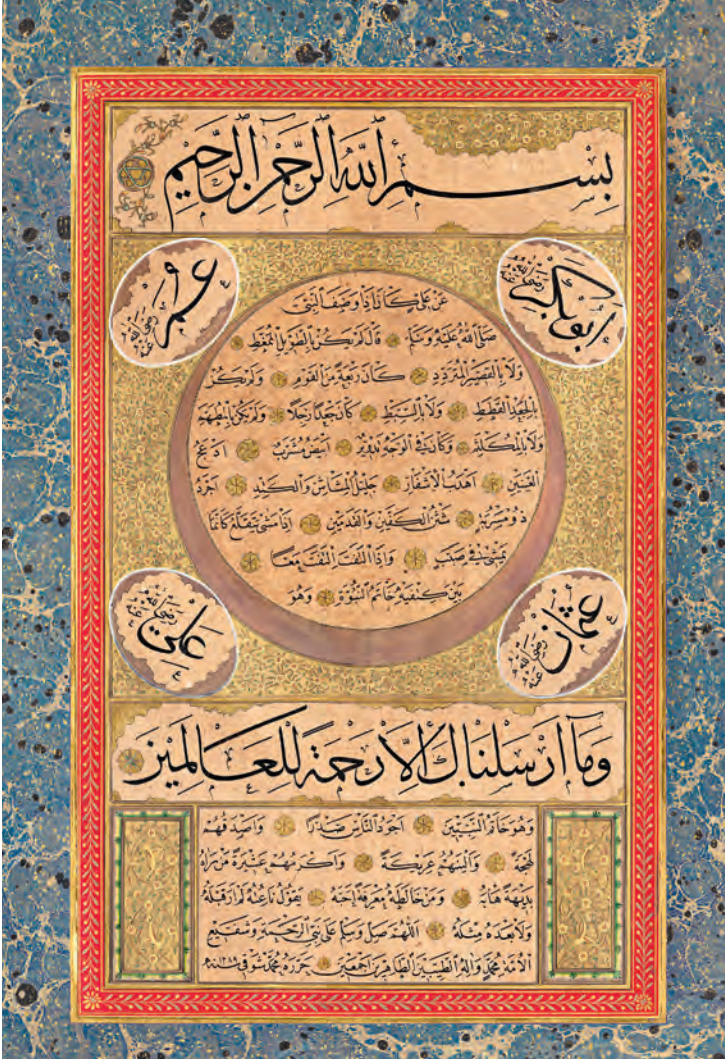 بِسْمِ اللهِ الرَّحْمٰنِ الرَّحِيمِ
ابو بكر رضي الله عنه
عمر رضي الله عنه
عن علي كان اذا وصف النبي
صلى الله عليه وسلم قال لم يكن بالطويل الممغط
ولا بالقصير المتردد كان ربعة من القوم ولم يكن
بالجعد القطط ولا بالسبط كان جعدا رجلا ولم يكن بالمطهم
ولا بالمكلثم وكان في الوجه تدوير ابيض مشرب ادعج
العينين اهدب الاشفار جليل المشاش والكتد اجرد
ذو مسربة شثن الكفين والقدمين اذا مشى يتقلع كانما
يمشي في صبب واذا التفت التفت معا
بين كتفيه خاتم النبوة وهو
عثمان رضي الله عنه
علي رضي الله عنه
وَمَا اَرْسَلْنَاكَ اِلَّا رَحْمَةً لِلْعَالَمِينَ
وهو خاتم النبيين اجود الناس صدرا واصدقهم
لهجة والينهم عريكة واكرمهم عشيرة من رآه
بديهة هابه ومن خالطه معرفة احبه يقول ناعته لم ار قبله
ولا بعده مثله اللهم صل وسلم على نبي الرحمة وشفيع
الامة محمد وآله الطيبين الطاهرين اجمعين حرره محمد شوقي